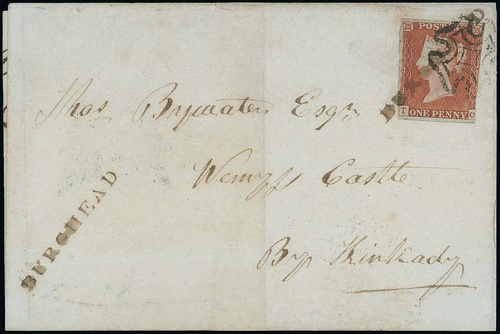 POSTAGE
ONE PENNY
Thos Bywater Esqr
Wemyss Castle
By Kirkcady
BURGHEAD